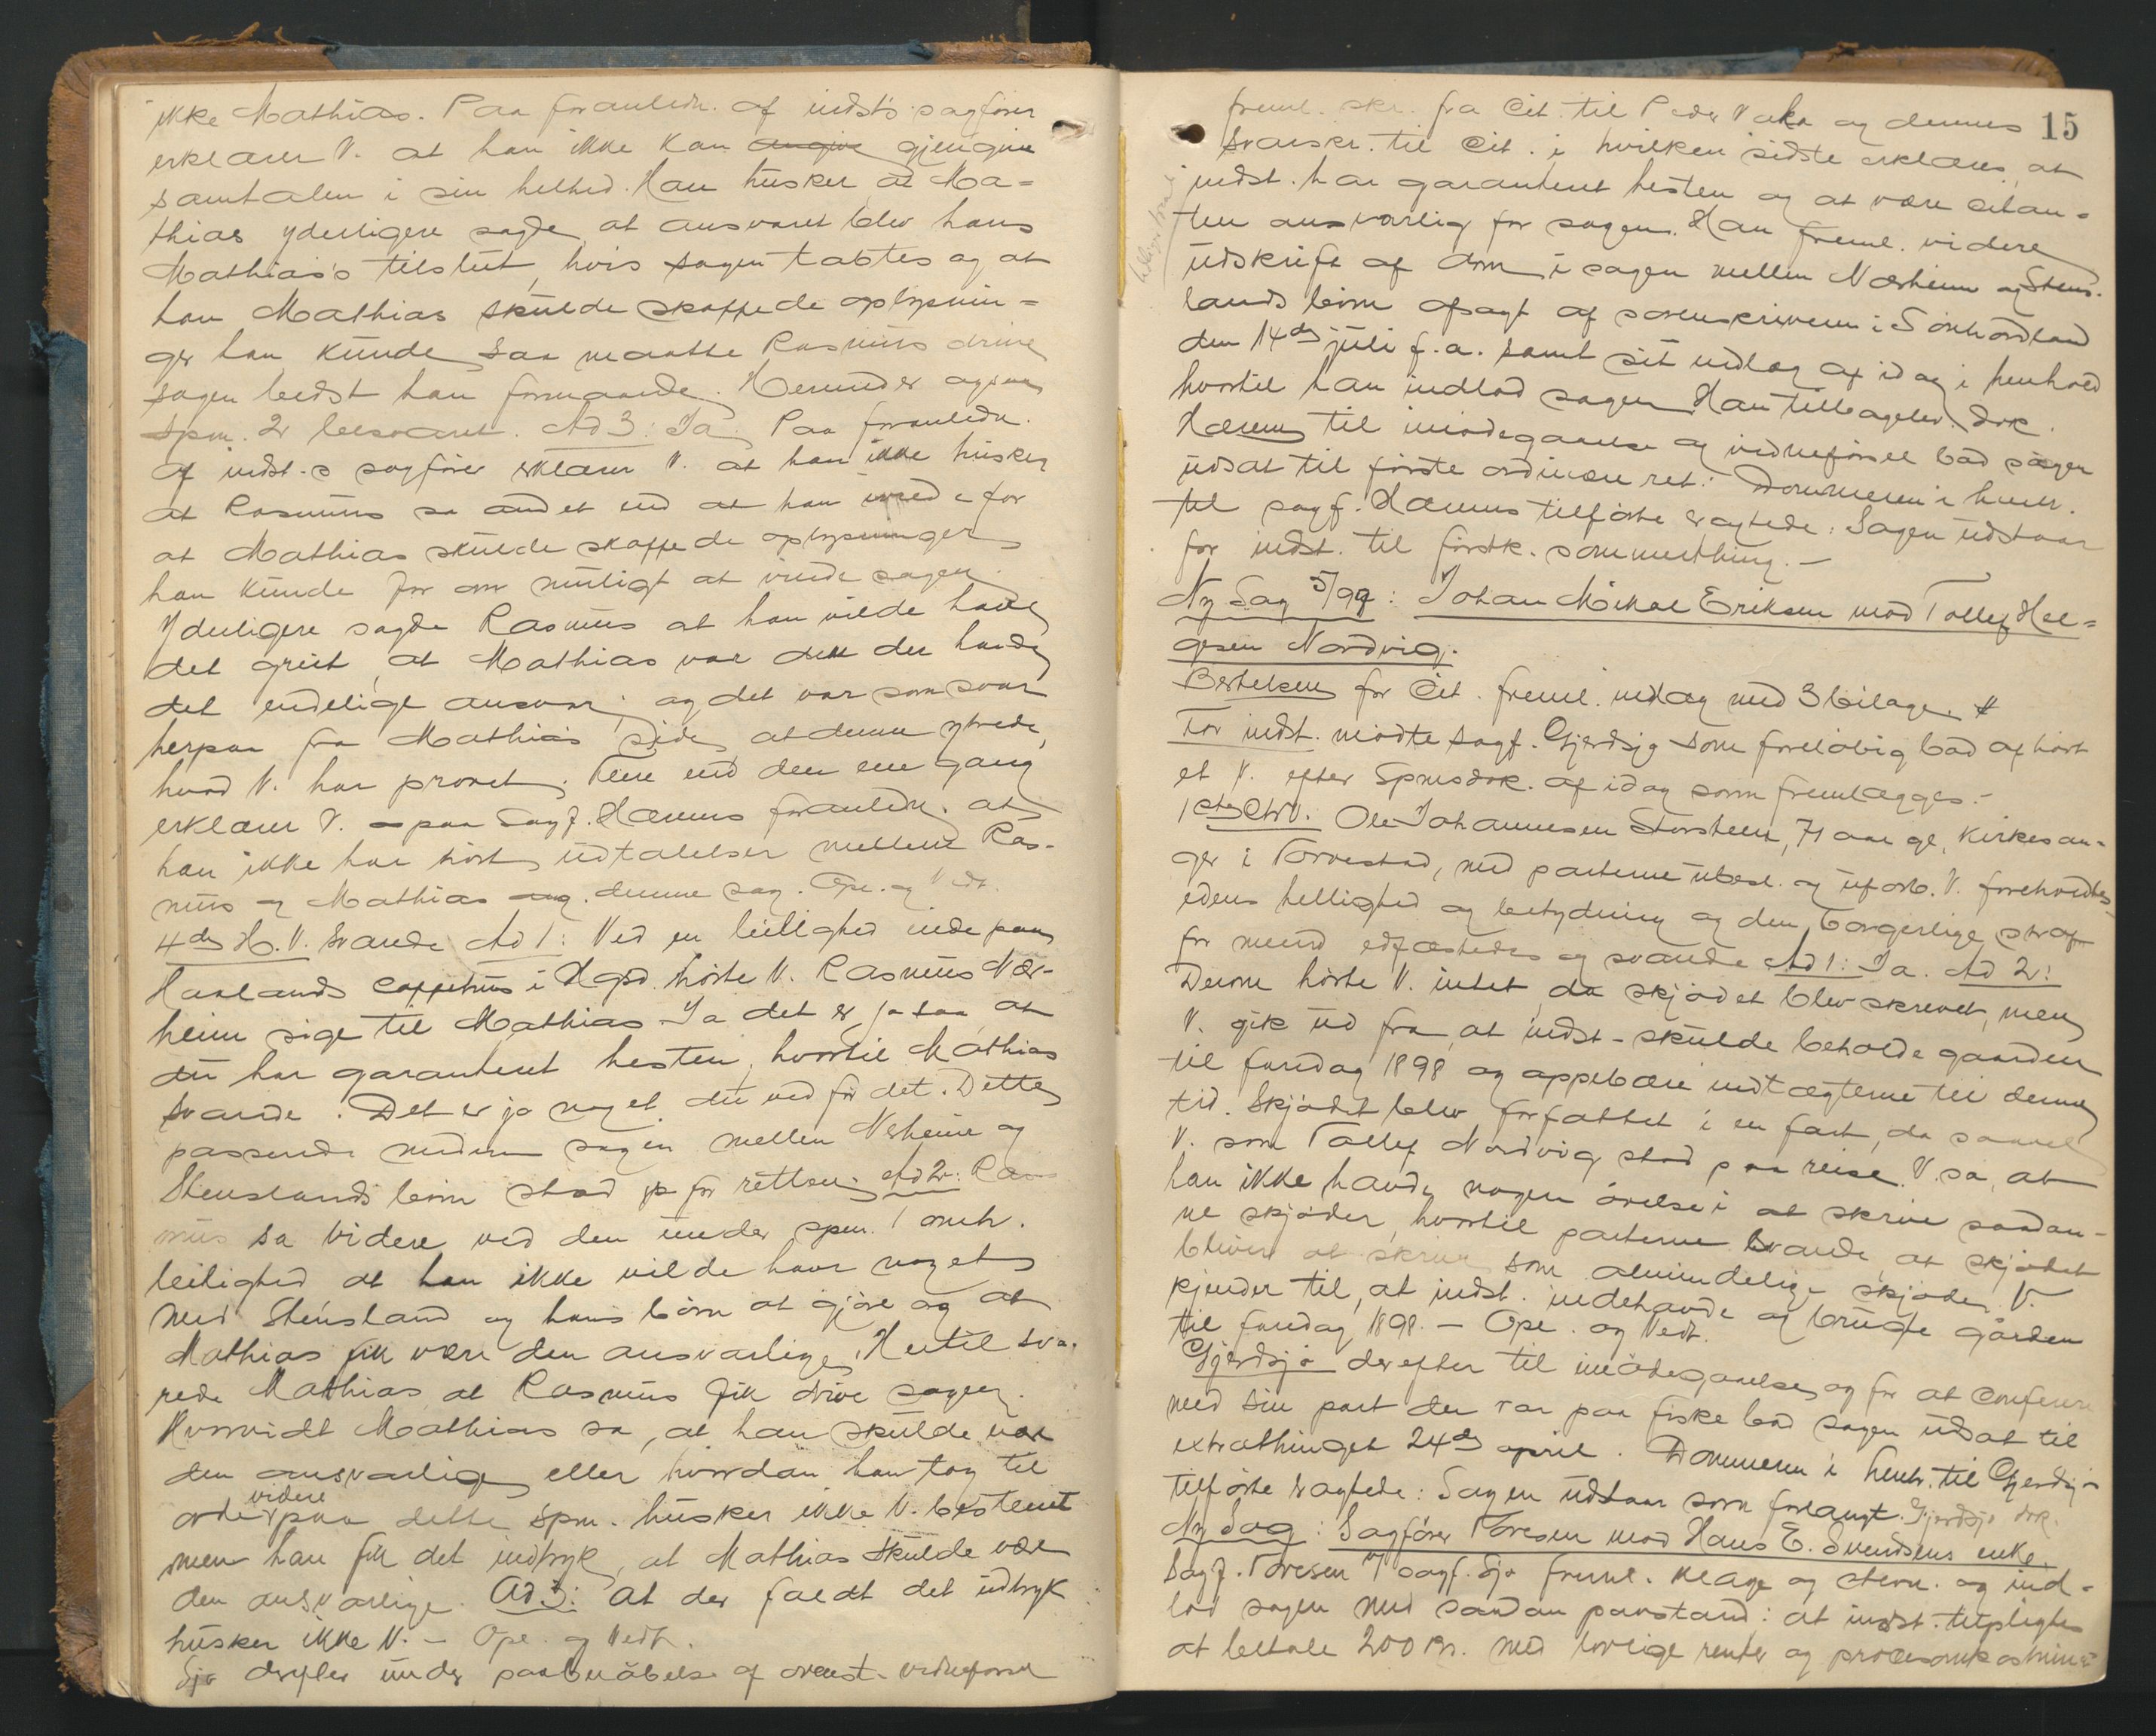 ikke Mathias. Paa foranledn. af indst's sagfører
erklærer V. at han ikke kan angive gjengive
samtalen i sin helhed. Han husker at Ma=
thias yderligere sagde at ansvaret blev hans
Mathias's tilslut, hvis sagen tabtes og at
han Mathias skulde skaffe de oplysnin=
ger han kunde saa maatte Rasmus drive
sagen bedst han formaaede. Herunder ogsaa
spm. 2 besvaret. Ad 3: Ja. Paa foranledn.
af indst.s sagfører erklærer V. at han ikke husker
at Rasmus sa andet end at han
at Mathias skulde skaffe de oplysninger
han kunde for om muligt at vinde sagen.
Yderligere sagde Rasmus at han vilde have
det greit, at Mathias var den der havde
det endelige ansvar; og det var som svar
herpaa fra Mathias side, at denne ytrede,
hvad V. har provet. Flere end den ene gang
erklærer V. paa Sagf. Hærums foranledn. at
han ikke har hørt udtalelser mellem Ras-
mus og Mathias ang. denne sag. Opl. og Vedt.
4de H.V. svarede Ad 1: Ved en leilighed inde paa
Haalands caffehus i Hgsd. hørte V. Rasmus Nær-
heim sige til Mathias Ja det er ja saa at
du har garanteret hesten, hvortil Mathias
svarede. Det er jo noget du ved før det. Dette
passerede medens sagen mellem Nærheim og
Stenslands børn stod for retten. Ad 2: Ras
mus sa videre ved den under spm. 1 omh.
leilighed at han ikke vilde have noget
med Stensland og hans børn at gjøre og at
Mathias fik være den ansvarlige. Hertil sva.
rede Mathias at Rasmus fik drive sagen.
Hvorvidt Mathias sa, at han skulde være
den ansvarlige eller hvordan han tog til
videre
orde paa dette spm. husker ikke V. bestemt
men han fik det indtryk, at Mathias skulde være
den ansvarlige. Ad 3: At der faldt det udtryk
husker ikke V. – Opl. og Vedt.
Sjø derefter under paaberåbelse af ovenst. vidneførsel
15
freml. skr. fra Cit. til Peder Vaka og dennes
svarskr. til Cit. i hvilken sidste erklæres, at
indst. har garanteret hesten og at være citan=
ten ansvarlig for sagen. Han freml. videre
udskrift af dom i sagen mellem Nærheim og Stens.
lands børn afsagt af sorenskriveren i Sønhordland
den 14de juli f.a. samt sit indlæg af idag i henhold
hvortil han indlod sagen. Han tilbagelev. dok.
Hærum til imødegaaelse og vidneførsel bad sagen
udsat til første ordinære ret. Dommeren i henh.
til sagf. Hærums tilførte eragtede: Sagen udstaar
for indst. til førstk. sommerthing. –
Ny Sag 5/99: Johan Mikal Eriksen mod Tollef Hel=
gesen Nordvig.
Bertelsen for Cit. freml. indlæg med 3 bilage.
For indst. mødte sagf. Gjerdsjø som foreløbig bad afhørt
et V. efter Spmsdok. af idag som fremlægges.-
1ste Ctrv. Ole Johannesen Storsteen, 71 aar gl., kirkesan-
ger i Torvestad, med parterne ubesl. og uforb. V. foreholdtes
edens hellighed og betydning og den borgerlige straf
for mened edfæstedes og svarede Ad 1: Ja. Ad 2:
Derom hørte V. intet da skjødet blev skrevet, men
V. gik ud fra, at indst. skulde beholde gaarden
til faredag 1898 og oppebære indtægterne til denne
tid. Skjødet blev forfattet i en fart, da saavel
V. som Tollef Nordvig stod paa reise. V. sa, at
han ikke havde nogen øvelse i at skrive saadan-
ne skjøder, hvortil parterne svarede, at skjødet
bliver at skrive som almindelige skjøder. V.
kjender til, at indst. indehavde og brugte gården
til faredag 1898. – Opl. og Vedt.
Gjerdsjø derefter til imødegaaelse og for at conferere
med sin part der var paa fiske bad sagen udsat til
extrathinget 24de april. Dommeren i henh. til Gjerdsjø
tilførte eragtede: Sagen udstaar som forlangt. Gjerdsjø dok.
Ny Sag: Sagfører Toresen mod Hans E. Svendsens enke.
Sagf. Toresen v/ sagf. Sjø freml. klage og stevn. og ind-
lod sagen med saadan paastand: at indst. tilpligtes
at betale 200 kr. med lovlige renter og procesomkostnin=